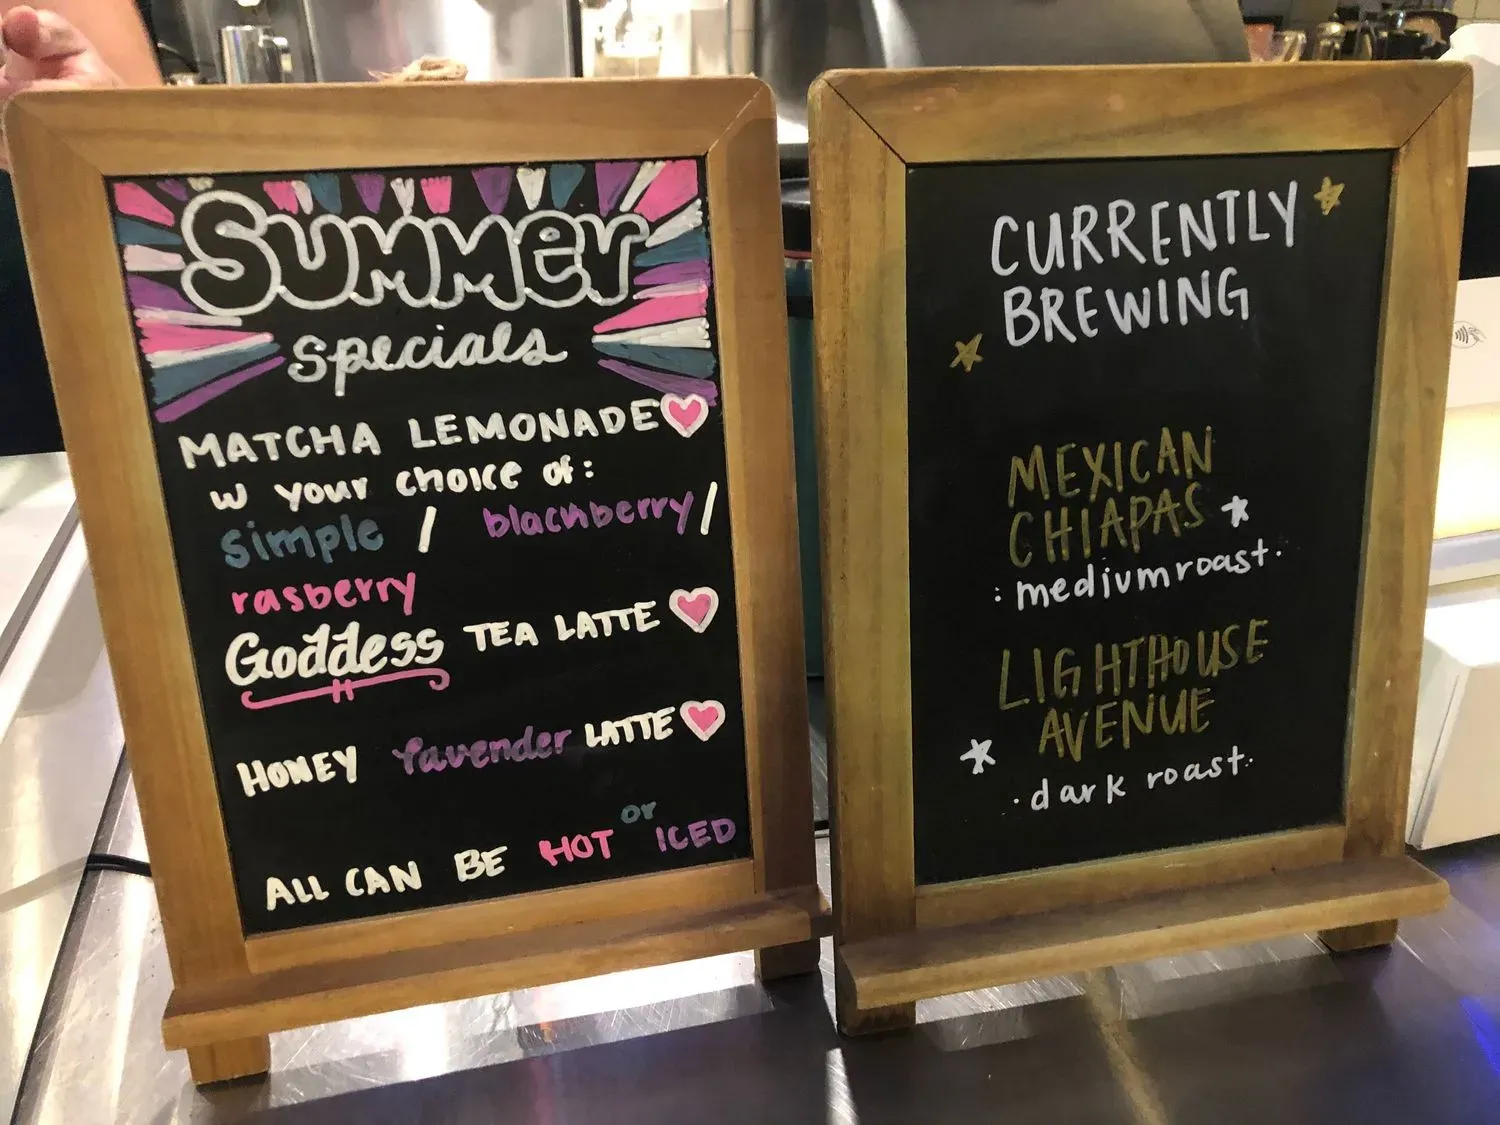 SUMMER
specials
MATCHA LEMONADE
w your choice of:
simple / blackberry/
rasberry
Goddess TEA LATTE
HONEY lavender LATTE
ALL CAN BE HOT or ICED
CURRENTLY
BREWING
MEXICAN
CHIAPAS
: medium roast.
LIGHTHOUSE
AVENUE
. dark roast.